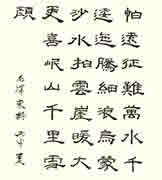 怕遠征難萬水千
逶迤騰細浪烏蒙
沙水拍雲崖暖
更喜岷山千里雪
顏
毛澤東詩